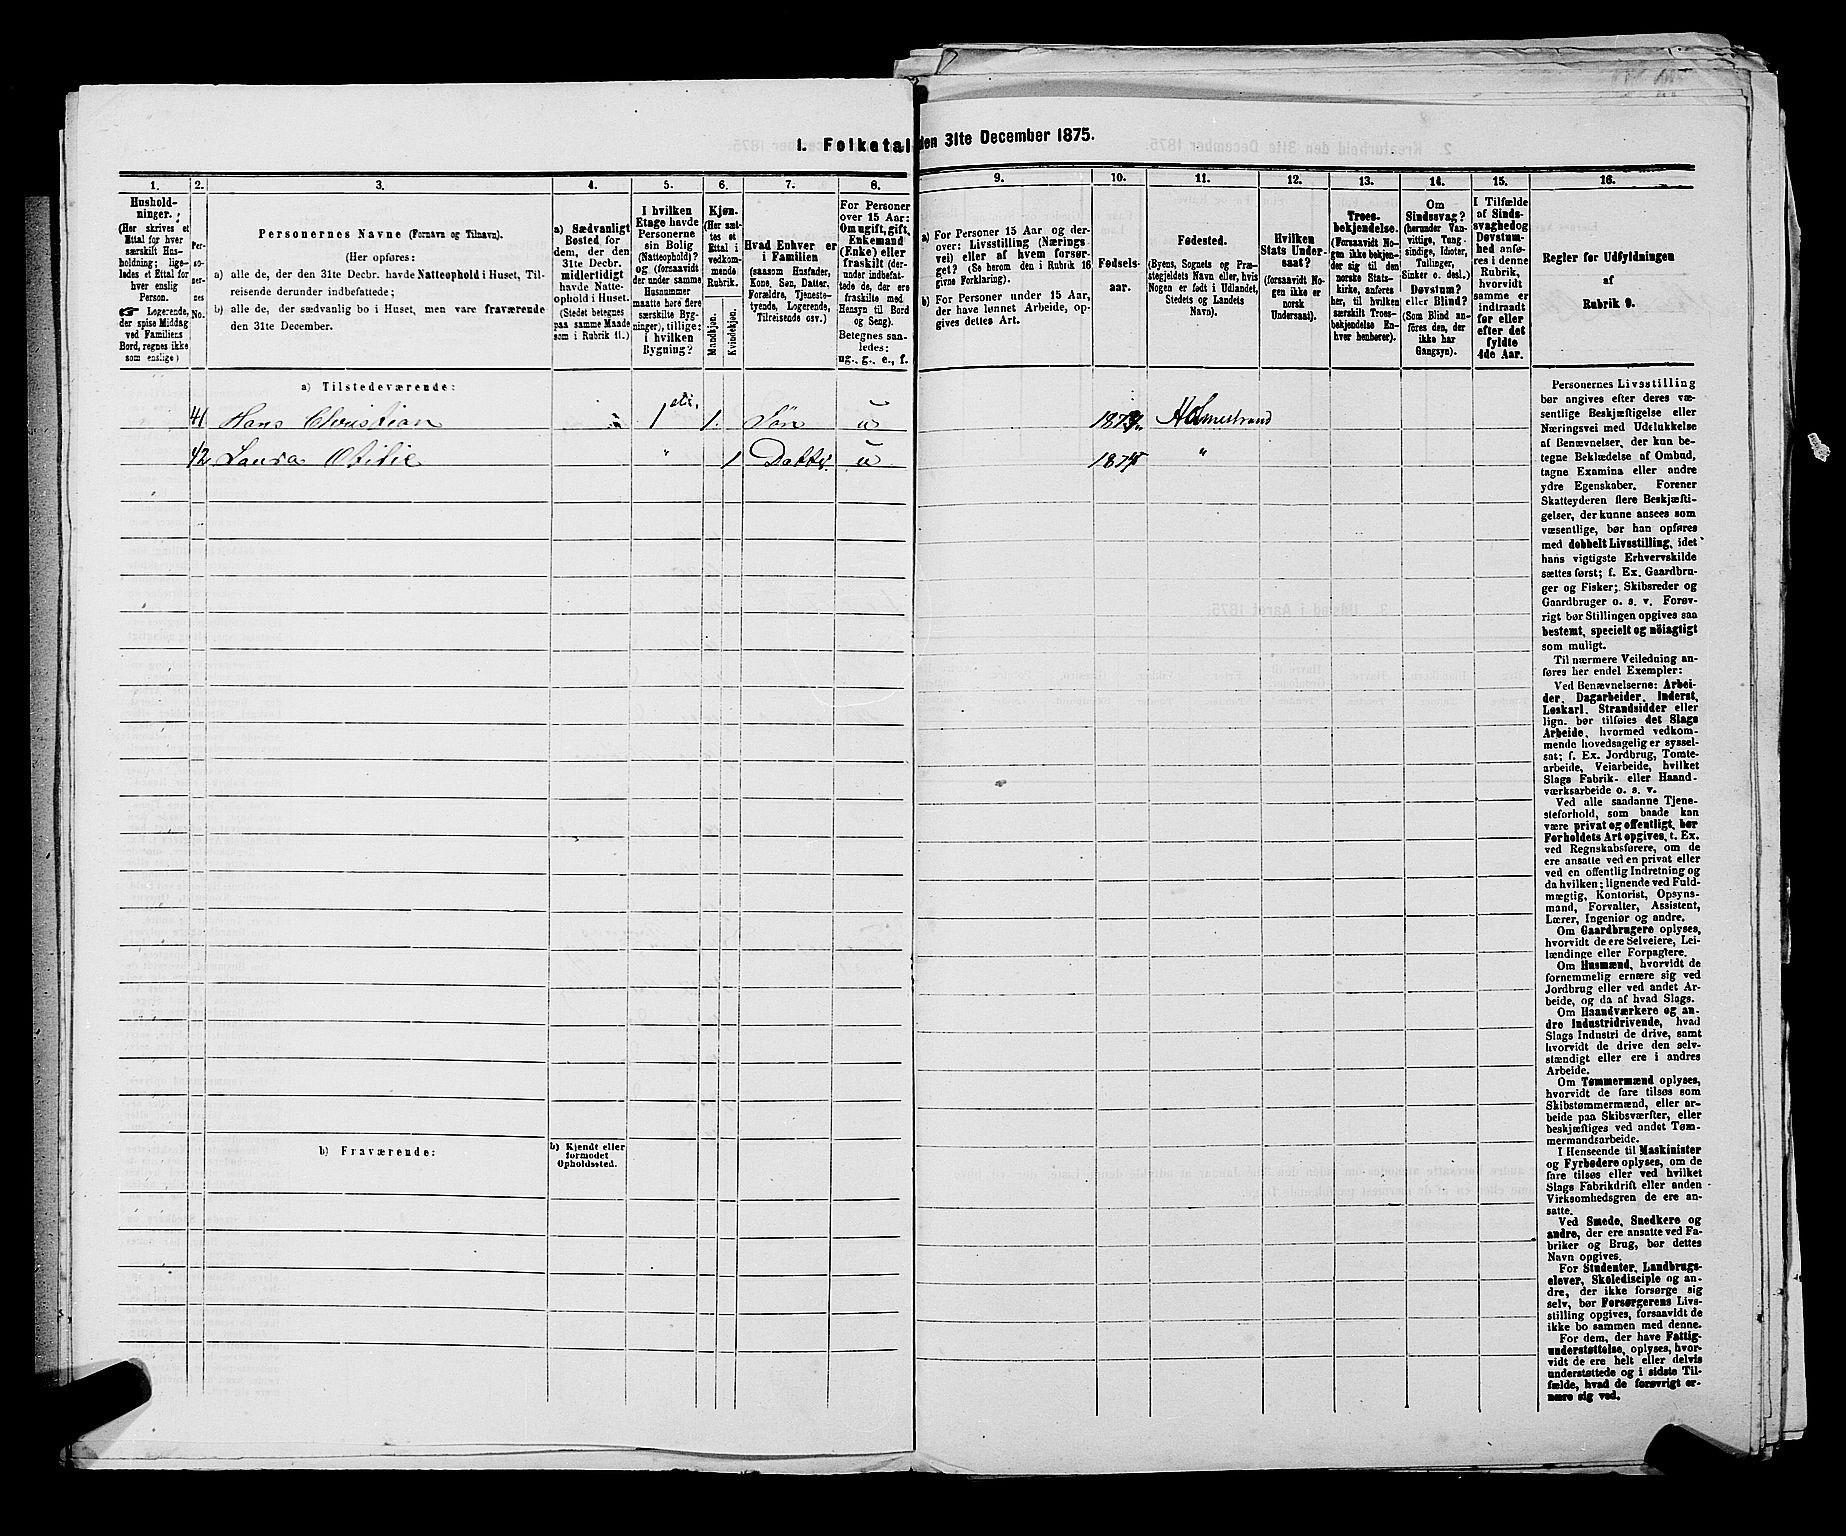 1. Folketal den 31te December 1875.
1.
2.
3.
4.
5.
6.
7.
8.
9.
10.
11.
12.
13.
14.
15.
16.
Hushold-
ninger.
(Her skrives et
Ettal for hver
særskilt Hus-
holdning; lige-
ledes et Ettal for
hver enslig
Person.
☛ Logerende,
der spise Middag
ved Familiens
Bord, regnes ikke
som enslige)
Per-
so-
ner-
nes
No.
Personernes Navne (Fornavn og Tilnavn).
(Her opføres:
a) alle de, der den 31te Decbr. havde Natteophold i Huset, Til-
reisende derunder indbefattede;
b) alle de, der sædvanlig bo i Huset, men vare fraværende
den 31te December.
a) Sædvanligt
Bosted for
dem, der den
31te Decbr.
midlertidigt
havde Natte-
ophold i Huset.
(Stedet betegnes
paa samme Maade
som i Rubrik 11.)
I hvilken
Etage havde
Personerne
sin Bolig
(Natteophold)?
og (forsaavidt
der under samme
Husnummer
maatte høre flere
særskilte Byg-
ninger), tillige:
i hvilken
Bygning?
Kjøn.
(Her sæt-
tes et
Ettal i
vedkom-
mende
Rubrik.
Mandkjøn.
Kvindekjøn.
Hvad Enhver er
i Familien
(saasom Husfader,
Kone, Søn, Datter,
Forældre, Tjeneste-
tyende, Logerende,
Tilreisende osv.)
For Personer
over 15 Aar:
Om ugift, gift,
Enkemand
(Enke) eller
fraskilt (der-
under indbefat-
tede de, der ere
fraskilte med
Hensyn til Bord
og Seng).
Betegnes saa-
ledes:
ug., g., e., f.
a) For Personer 15 Aar og der-
over: Livsstilling (Nærings-
vei) eller af hvem forsør-
get? (Se herom den i Rubrik 16
givne Forklaring).
b) For Personer under 15 Aar,
der have lønnet Arbeide, op-
gives dettes Art.
Fødsels-
aar.
Fødested.
(Byens, Sognets og Præ-
stegjeldets Navn eller, hvis
Nogen er født i Udlandet,
Stedets og Landets
Navn).
Hvilken
Stats Under-
saat?
(forsaavidt No-
gen ikke er
norsk
Undersaat).
Troes-
bekjendelse.
(Forsaavidt No-
gen ikke bekjen-
der sig til den
norske Stats-
kirke, anføres
her, til hvilken
særskilt Troes-
bekjendelse En-
hver henhører).
Om
Sindssvag?
(herunder Van-
vittige, Tung-
sindige, Idioter,
Tullinger,
Sinker o. desl.)
Døvstum?
eller Blind?
(Som Blind an-
føres den, der
ikke har
Gangsyn).
I Tilfælde
af Sinds-
svaghed og
Døvstum-
hed anfø-
res i denne
Rubrik,
hvorvidt
samme er
indtraadt
før eller
efter det
fyldte
4de Aar.
Regler før Udfyldningen
af
Rubrik 9.
a) Tilstedeværende:
41 Hans Christian 1 etg. 1. Søn u 1873 Holmestrand
42 Laura Otilie " 1 Datter u 1875 "
b) Fraværende:
b) Kjendt eller
formodet
Opholdssted.
Personernes Livsstilling
bør angives efter deres væ-
sentlige Beskjæftigelse eller
Næringsvei med Udelukkelse
af Benævnelser, der kun be-
tegne Beklædelse af Ombud,
tagne Examina eller andre
ydre Egenskaber. Forener
Skatteyderen flere Beskjæfti-
gelser, der kunne ansees som
væsentlige, bør han opføres
med dobbelt Livsstilling, idet
hans vigtigste Erhvervskilde
sættes først; f. Ex. Gaardbru-
ger og Fisker; Skibsreder og
Gaardbruger o. s. v. Forøv-
rigt bør Stillingen opgives saa
bestemt, specielt og nöiagtigt
som muligt.
Til nærmere Veiledning an-
føres her endel Exempler:
Ved Benævnelserne: Arbei-
der, Dagarbeider, Inderst,
Løskarl, Strandsidder eller
lign. bør tilføies det Slags
Arbeide, hvormed vedkom-
mende hovedsagelig er syssel-
sat; f. Ex. Jordbrug, Tomte-
arbeide, Veiarbeide, hvilket
Slags Fabrik- eller Haand-
værksarbeide o. s. v.
Ved alle saadanne Tjene-
steforhold, som baade kan
være privat og offentligt, bør
Forholdets Art opgives, t. Ex.
ved Regnskabsførere, om de
ere ansatte ved en privat eller
ved en offentlig Indretning og
da hvilken; lignende ved Fuld-
mægtig, Kontorist, Opsyns-
mand, Forvalter, Assistent,
Lærer, Ingeniør og andre.
Om Gaardbrugere oplyses,
hvorvidt de ere Selveiere, Lei-
lændinge eller Forpagtere.
Om Husmænd, hvorvidt de
fornemmelig ernære sig ved
Jordbrug eller ved andet Ar-
beide, og da af hvad Slags.
Om Haandværkere og an-
dre Industridrivende, hvad
Slags Industri de drive, samt
hvorvidt de drive den selv-
stændigt eller ere i andres
Arbeide.
Om Tømmermænd oplyses,
hvorvidt de fare tilsøs som
Skibstømmermænd, eller ar-
beide paa Skibsværfter, eller
beskjæftiges ved andet Tøm-
mermandsarbeide.
I Henseende til Maskinister
og Fyrbødere oplyses, om de
fare tilsøs eller ved hvilket
Slags Fabrikdrift eller anden
Virksomhedsgren de ere an-
satte.
Ved Smede, Snedkere og
andre, der ere ansatte ved Fa-
briker og Brug, bør dettes
Navn opgives.
For Studenter, Landbrugs-
elever, Skoledisciple og an-
dre, der ikke forsørge sig
selv, bør Forsørgerens Livs-
stilling opgives, forsaavidt de
ikke bo sammen med denne.
For dem, der have Fattig-
understøttelse, oplyses, hvor-
vidt de ere helt eller delvis
understøttede og i sidste Til-
fælde, hvad de forøvrigt er-
nære sig ved.